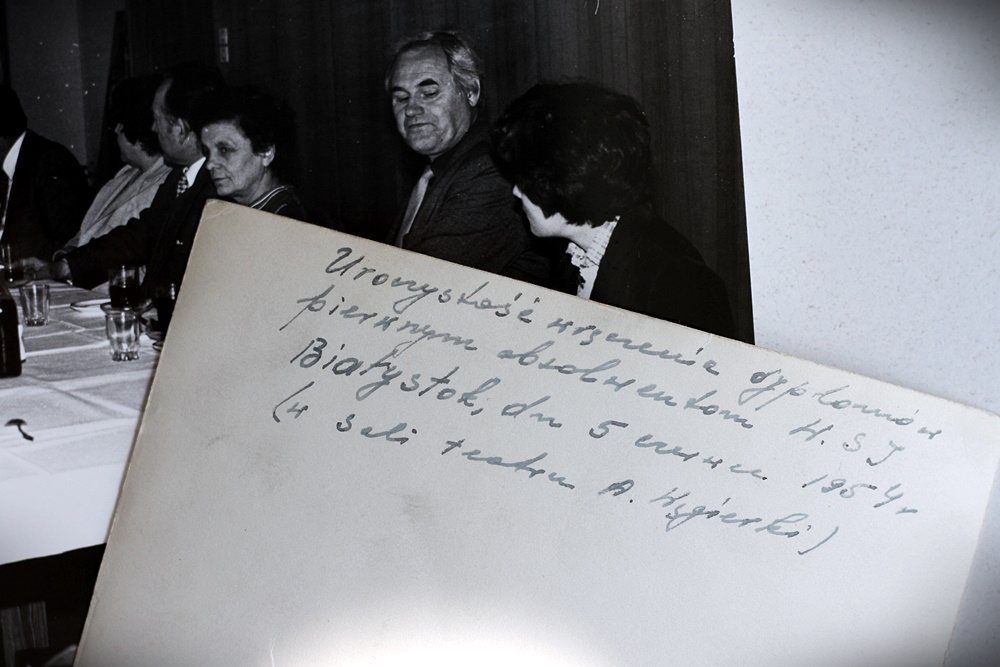 Uroczystość wręczenia dyplomów
pierwszym absolwentom W.S I
Białystok, dn 5 czerwca 1954 r
(w sali teatru A. Węgierki)